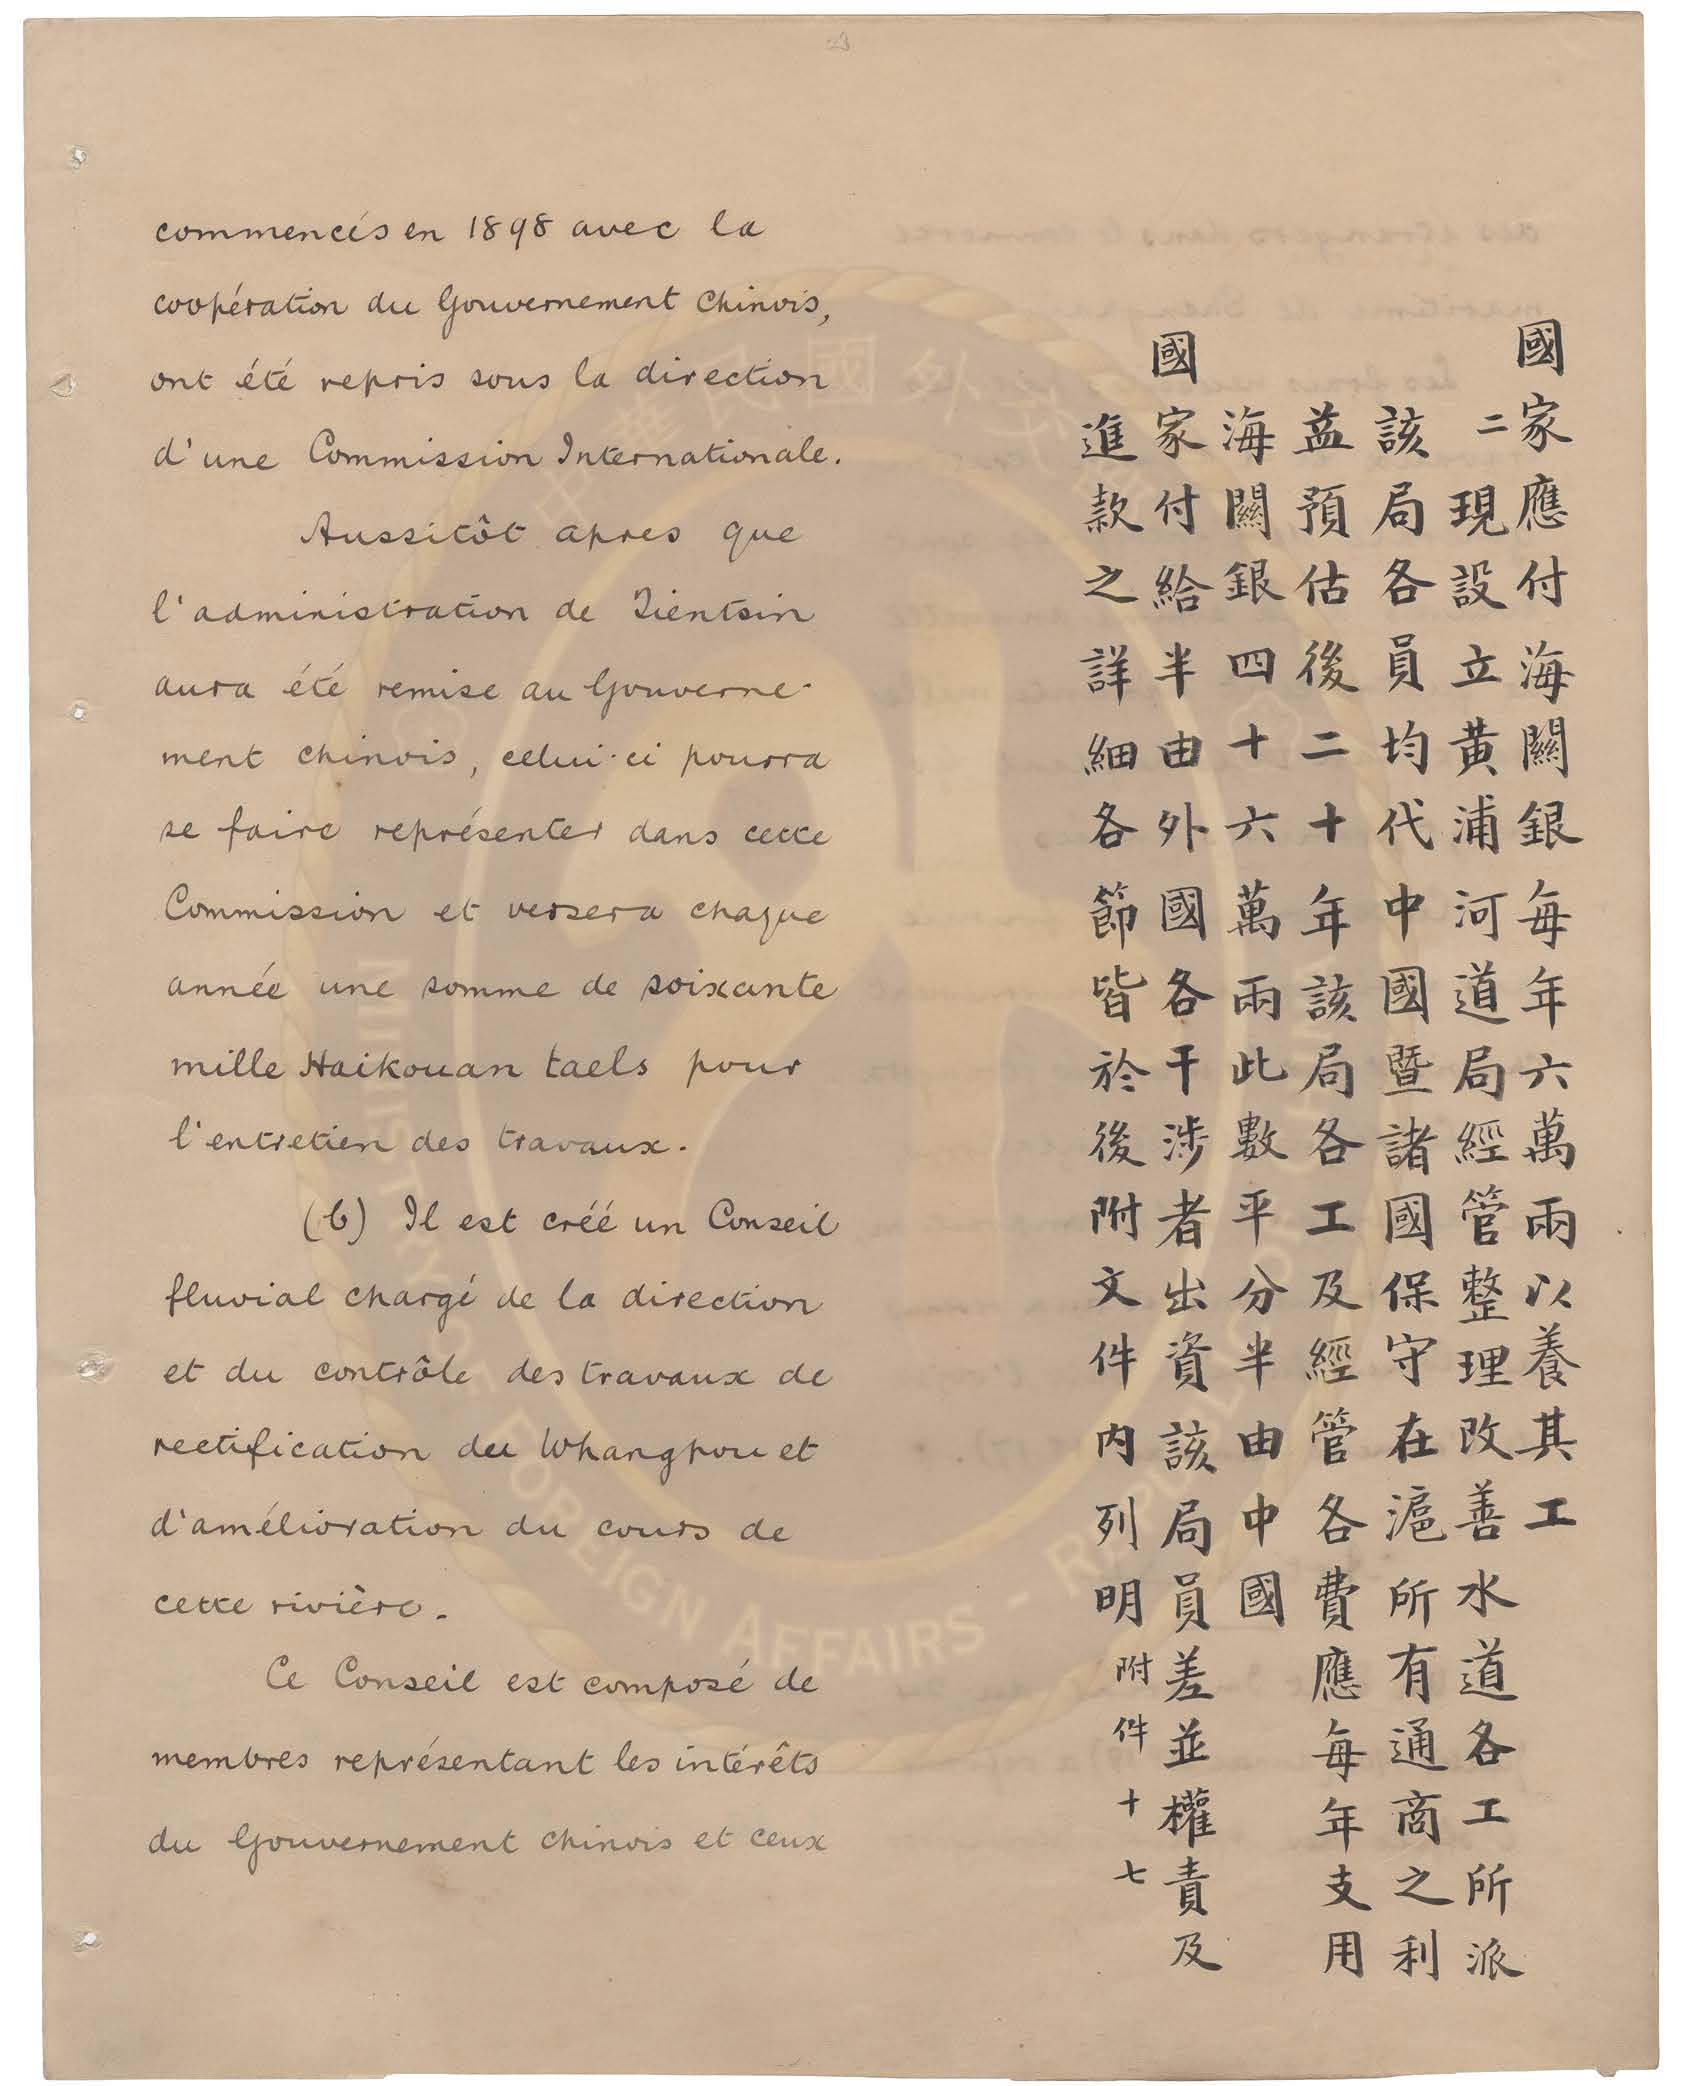 commencés en 1898 avec la
coopération du Gouvernement Chinois,
ont été repris sous la direction
d'une Commission Internationale.
Aussitôt apres que
l'administration de Tientsin
aura été remise au Gouverne-
ment chinois, celui-ci pourra
se faire représenter dans cette
Commission et versera chaque
année une somme de soixante
mille Haikouan taels pour
l'entretien des travaux.
(b) Il est créé un Conseil
fluvial chargé de la direction
et du contrôle des travaux de
rectification du Whangpou et
d'amélioration du cours de
cette rivière.
Ce Conseil est composé de
membres représentant les intérêts
du Gouvernement chinois et ceux
國家應付海關銀每年六萬兩以養其工
二現設立黃浦河道局經管整理改善水道各工所派
該局各員均代中國暨諸國保守在滬所有通商之利
益預估後二十年該局各工及經管各費應每年支用
海關銀四十六萬兩此數平分半由中國
國家付給半由外國各干涉者出資該局員差並權責及
進款之詳細各節皆於後附文件內列明附件十七
中華民國外交部
MINISTRY OF FOREIGN AFFAIRS - REPUBLIC OF CHINA